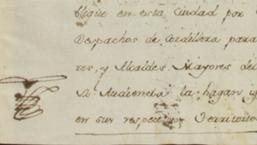 lique en esta Ciudad por
Despachos de Cordillera para
res, y Alcaldes Mayores de
Audiencia la hagan
en sus respectivos Territorio